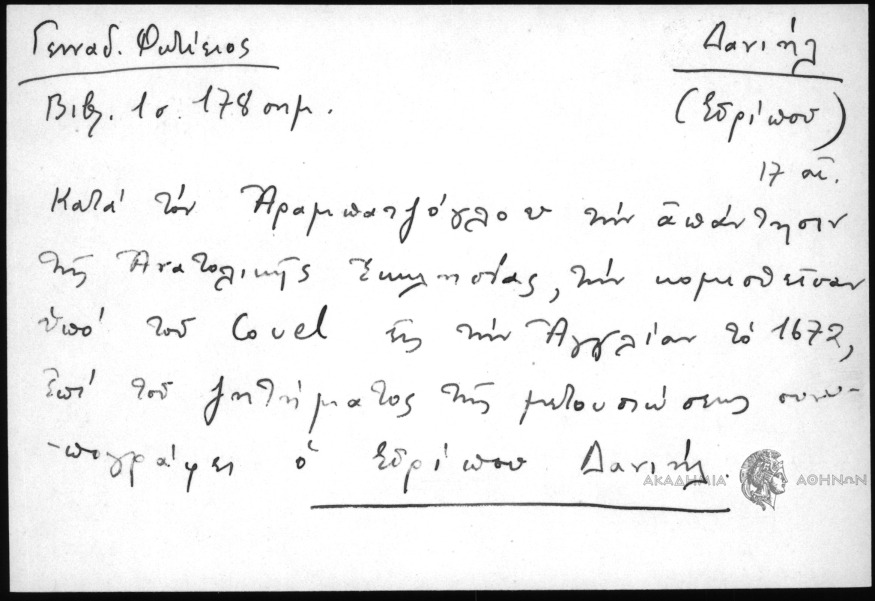 Γενναδ. Φωτίειος
Δανιήλ
Βιβλ. 1σ. 178 σημ.
(Εὐρίπου)
17 αἰ.
Κατά τόν Ἀραμπατζόγλου τήν ἀπάντησιν
τῆς Ἀνατολικῆς Ἐκκλησίας, τήν κομισθεῖσαν
ὑπό τοῦ Covel εἰς τήν Ἀγγλίαν τό 1672,
ἐπί τοῦ ζητήματος τῆς μετουσιώσεως συνυ-
-πογράφει ὁ Εὐρίπου Δανιήλ.
ΑΚΑΔΗΜΙΑ ΑΘΗΝΩΝ